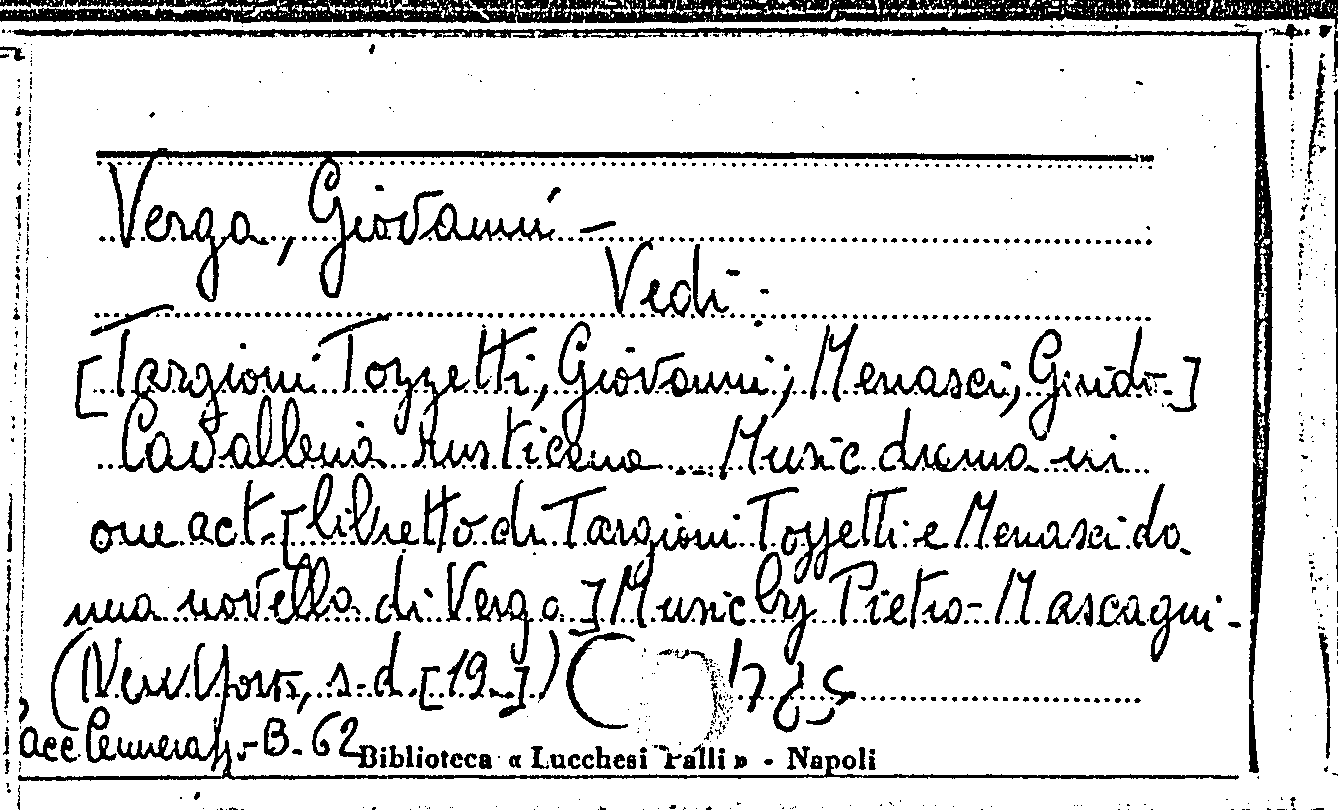 Verga, Giovanni -
Vedi:
[Targioni Tozzetti, Giovanni; Menasci, Guido.]
Cavalleria rusticana... Music drama in
one act. [libretto di Targioni Tozzetti e Menasci da
una novella di Verga] Music by Pietro Mascagni.
(New York, s.d. [19..])
B. 62
Biblioteca « Lucchesi Palli » - Napoli